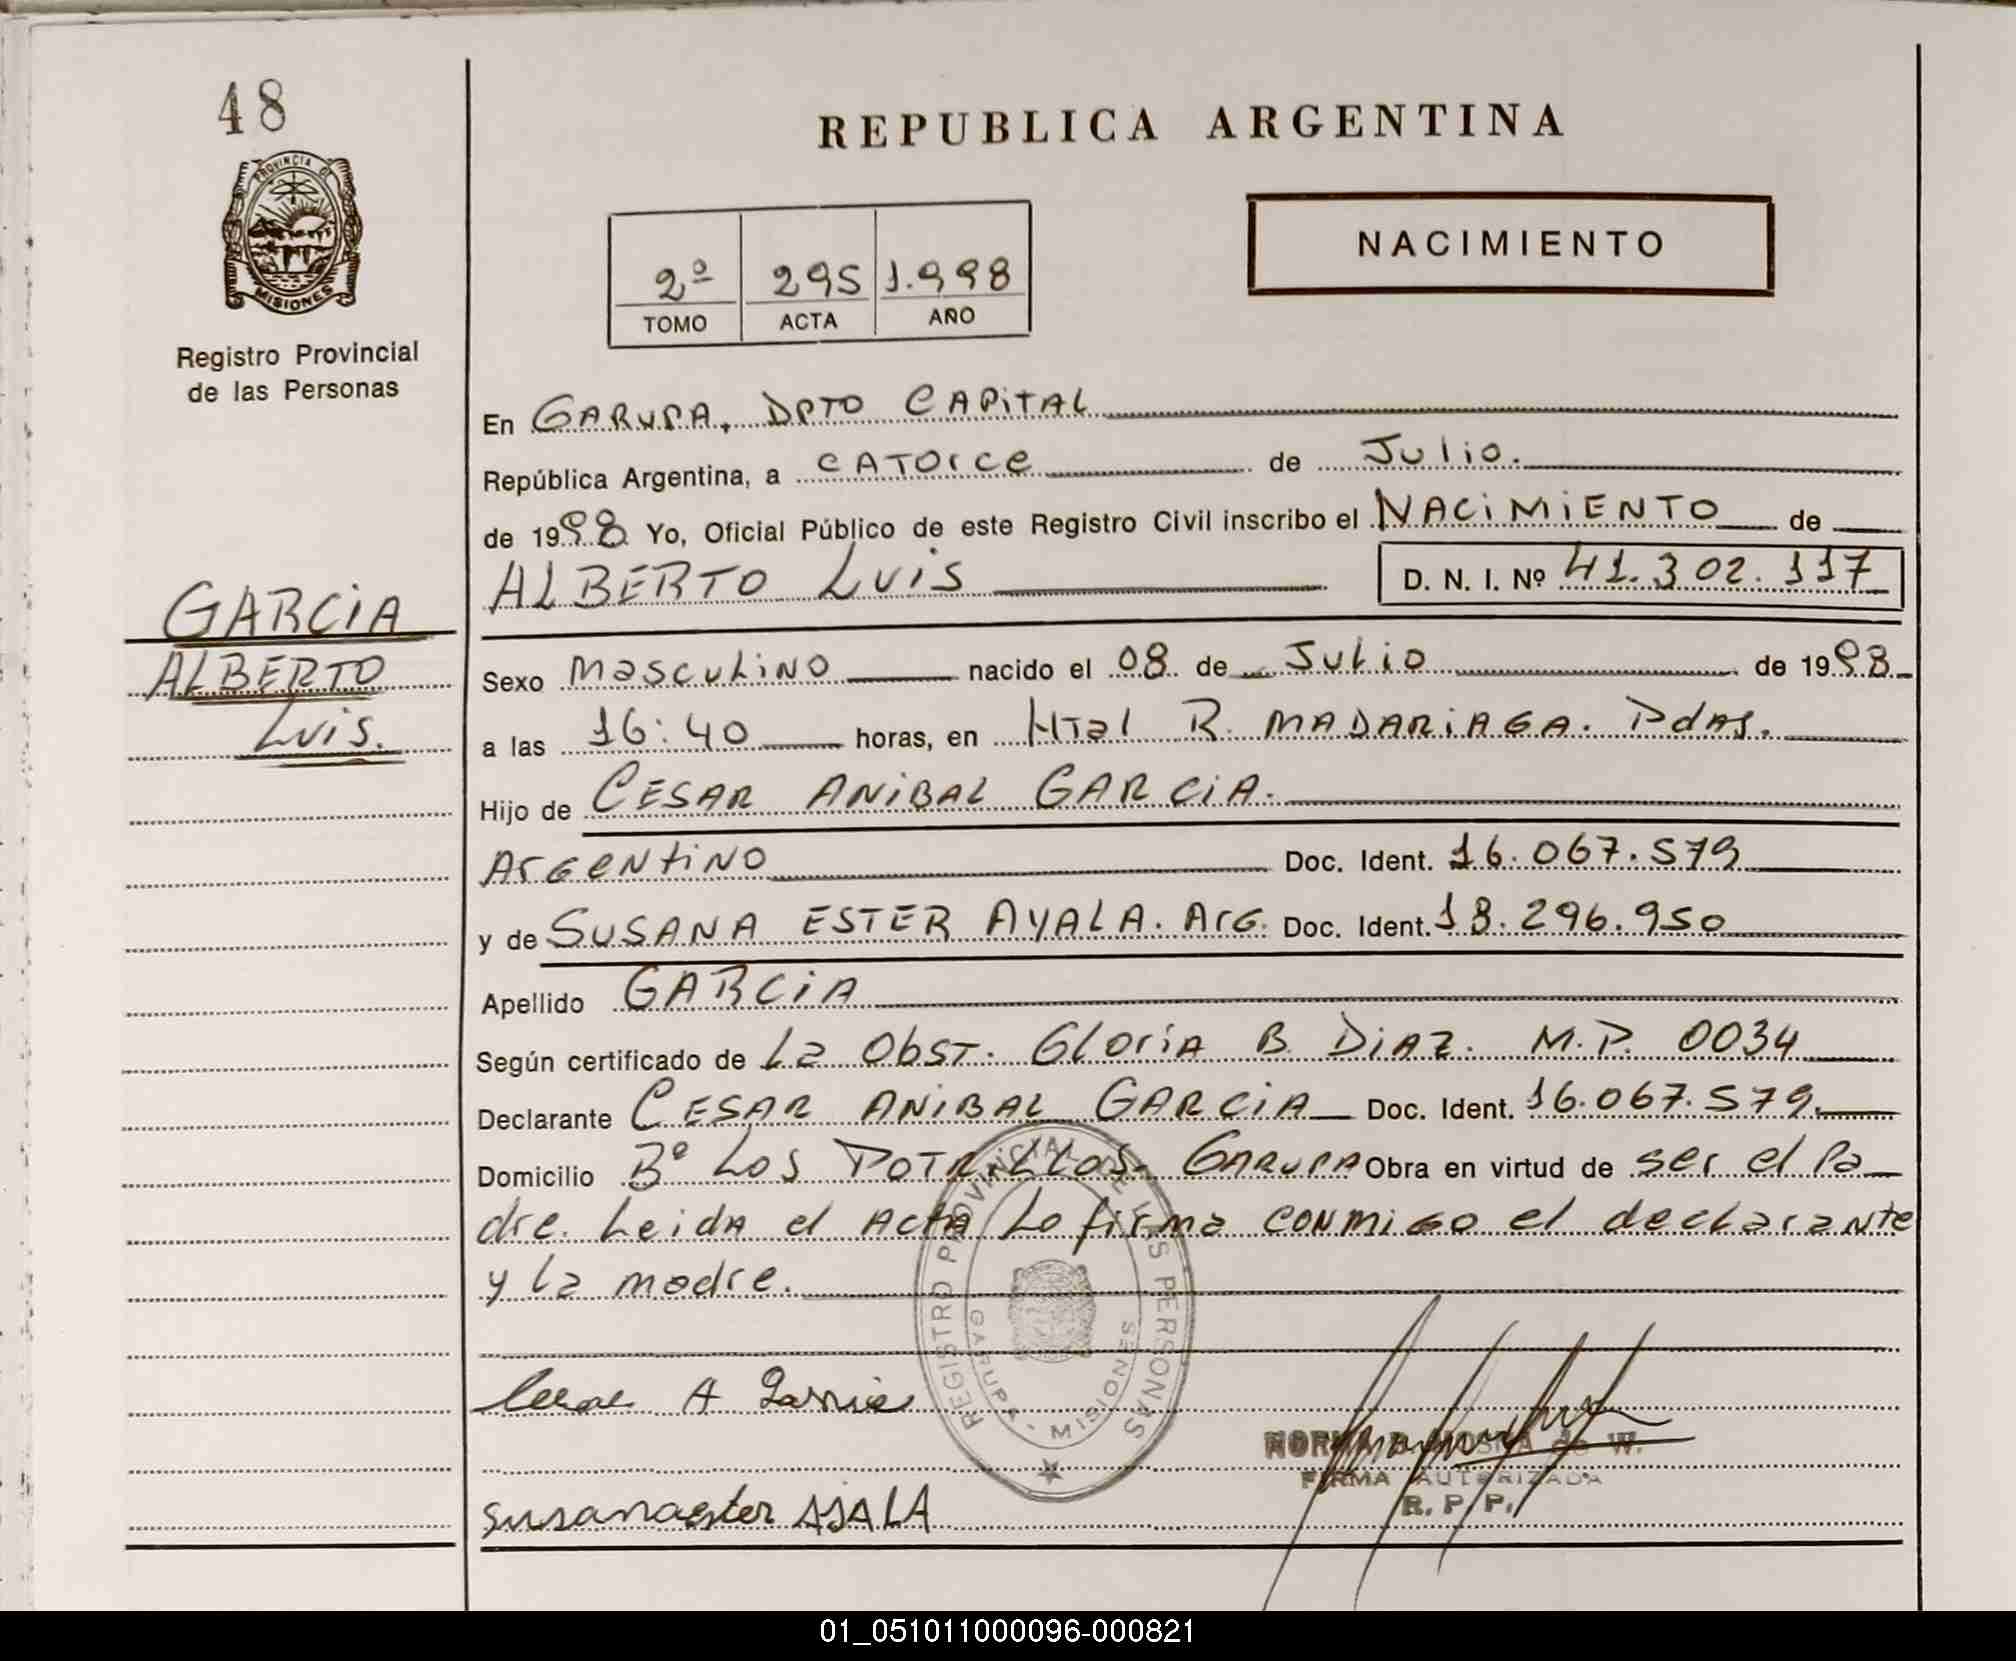 48
REPUBLICA ARGENTINA
PROVINCIA DE
MISIONES
Registro Provincial
de las Personas
NACIMIENTO
2º 295 1.998
TOMO ACTA AÑO
En GARUPA, DPTO CAPITAL
República Argentina, a CATORCE de Julio.
de 1998 Yo, Oficial Público de este Registro Civil inscribo el NACIMIENTO de
ALBERTO LUIS D. N. I. Nº 41.302.117
GARCIA
ALBERTO
LUIS.
Sexo MASCULINO nacido el 08 de Julio de 1998
a las 16:40 horas, en HTal R. MADARIAGA. PdAS.
Hijo de CESAR ANIBAL GARCIA.
ArGENTINO Doc. Ident. 16.067.579
y de SUSANA ESTER AYALA. ArG. Doc. Ident. 18.296.950
Apellido GARCIA
Según certificado de La Obst. GLORIA B. DIAZ. M.P. 0034
Declarante CESAR ANIBAL GARCIA Doc. Ident. 16.067.579.
Domicilio Bº LOS POTRILLOS. GARUPA Obra en virtud de ser el Pa
dre. Leida el Acta Lo firma conmigo el declarante
y la madre.
REGISTRO PROVINCIAL DE LAS PERSONAS
GARUPA - MISIONES
Cesar A Garcia
FIRMA AUTORIZADA
R. P. P.
susana ester AJALA
01_051011000096-000821